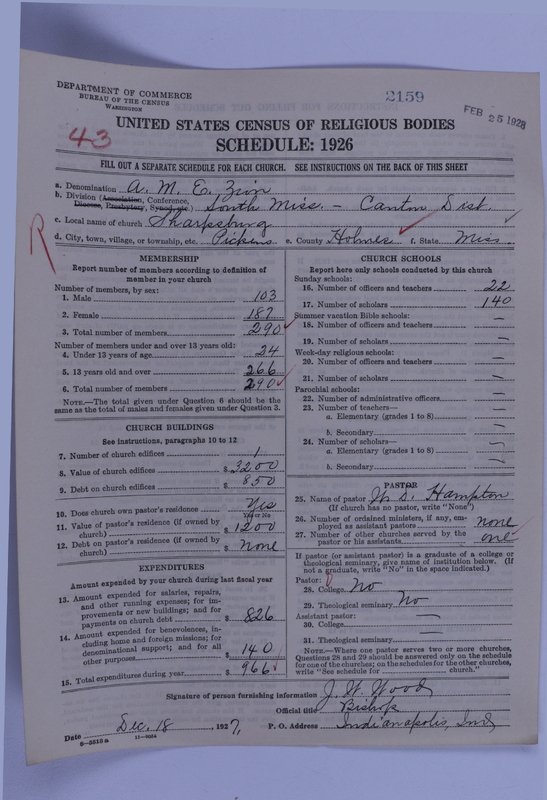 DEPARTMENT OF COMMERCE
BUREAU OF THE CENSUS
WASHINGTON
2159
FEB 25 1928
43
UNITED STATES CENSUS OF RELIGIOUS BODIES
SCHEDULE: 1926
FILL OUT A SEPARATE SCHEDULE FOR EACH CHURCH. SEE INSTRUCTIONS ON THE BACK OF THIS SHEET
a. Denomination A. M. E. Zion
b. Division (Association, Conference, Diocese, Presbytery, Synod, etc.) South Miss. - Canton Dist.
c. Local name of church Sharpsburg
R
d. City, town, village, or township, etc. Pickens e. County Holmes f. State Miss.
MEMBERSHIP
Report number of members according to definition of
member in your church
Number of members, by sex:
1. Male 103
2. Female 187
3. Total number of members 290
Number of members under and over 13 years old:
4. Under 13 years of age 24
5. 13 years old and over 266
6. Total number of members 290
NOTE.—The total given under Question 6 should be the
same as the total of males and females given under Question 3.
CHURCH BUILDINGS
See instructions, paragraphs 10 to 12
7. Number of church edifices 1
8. Value of church edifices $ 3200
9. Debt on church edifices $ 850
10. Does church own pastor's residence Yes
Yes or No
11. Value of pastor's residence (if owned by
church) $ 1200
12. Debt on pastor's residence (if owned by
church) $ None
EXPENDITURES
Amount expended by your church during last fiscal year
13. Amount expended for salaries, repairs,
and other running expenses; for im-
provements or new buildings; and for
payments on church debt $ 826
14. Amount expended for benevolences, in-
cluding home and foreign missions; for
denominational support; and for all
other purposes $ 140
15. Total expenditures during year $ 966
CHURCH SCHOOLS
Report here only schools conducted by this church
Sunday schools:
16. Number of officers and teachers 22
17. Number of scholars 140
Summer vacation Bible schools:
18. Number of officers and teachers —
19. Number of scholars —
Week-day religious schools:
20. Number of officers and teachers —
21. Number of scholars —
Parochial schools:
22. Number of administrative officers —
23. Number of teachers—
a. Elementary (grades 1 to 8) —
b. Secondary —
24. Number of scholars—
a. Elementary (grades 1 to 8) —
b. Secondary —
PASTOR
25. Name of pastor Hampton
(If church has no pastor, write "None")
26. Number of ordained ministers, if any, em-
ployed as assistant pastors none
27. Number of other churches served by the
pastor or his assistants one
If pastor (or assistant pastor) is a graduate of a college or
theological seminary, give name of institution below. (If
not a graduate, write "No" in the space indicated.)
Pastor:
28. College No
29. Theological seminary No
Assistant pastor:
30. College —
31. Theological seminary —
NOTE.—Where one pastor serves two or more churches,
Questions 28 and 29 should be answered only on the schedule
for one of the churches; on the schedules for the other churches,
write "See schedule for church."
Signature of person furnishing information J. W. Wood
Official title Bishop
Date Dec. 18, 1927, P. O. Address Indianapolis, Ind.
8—5513 a 11—9024